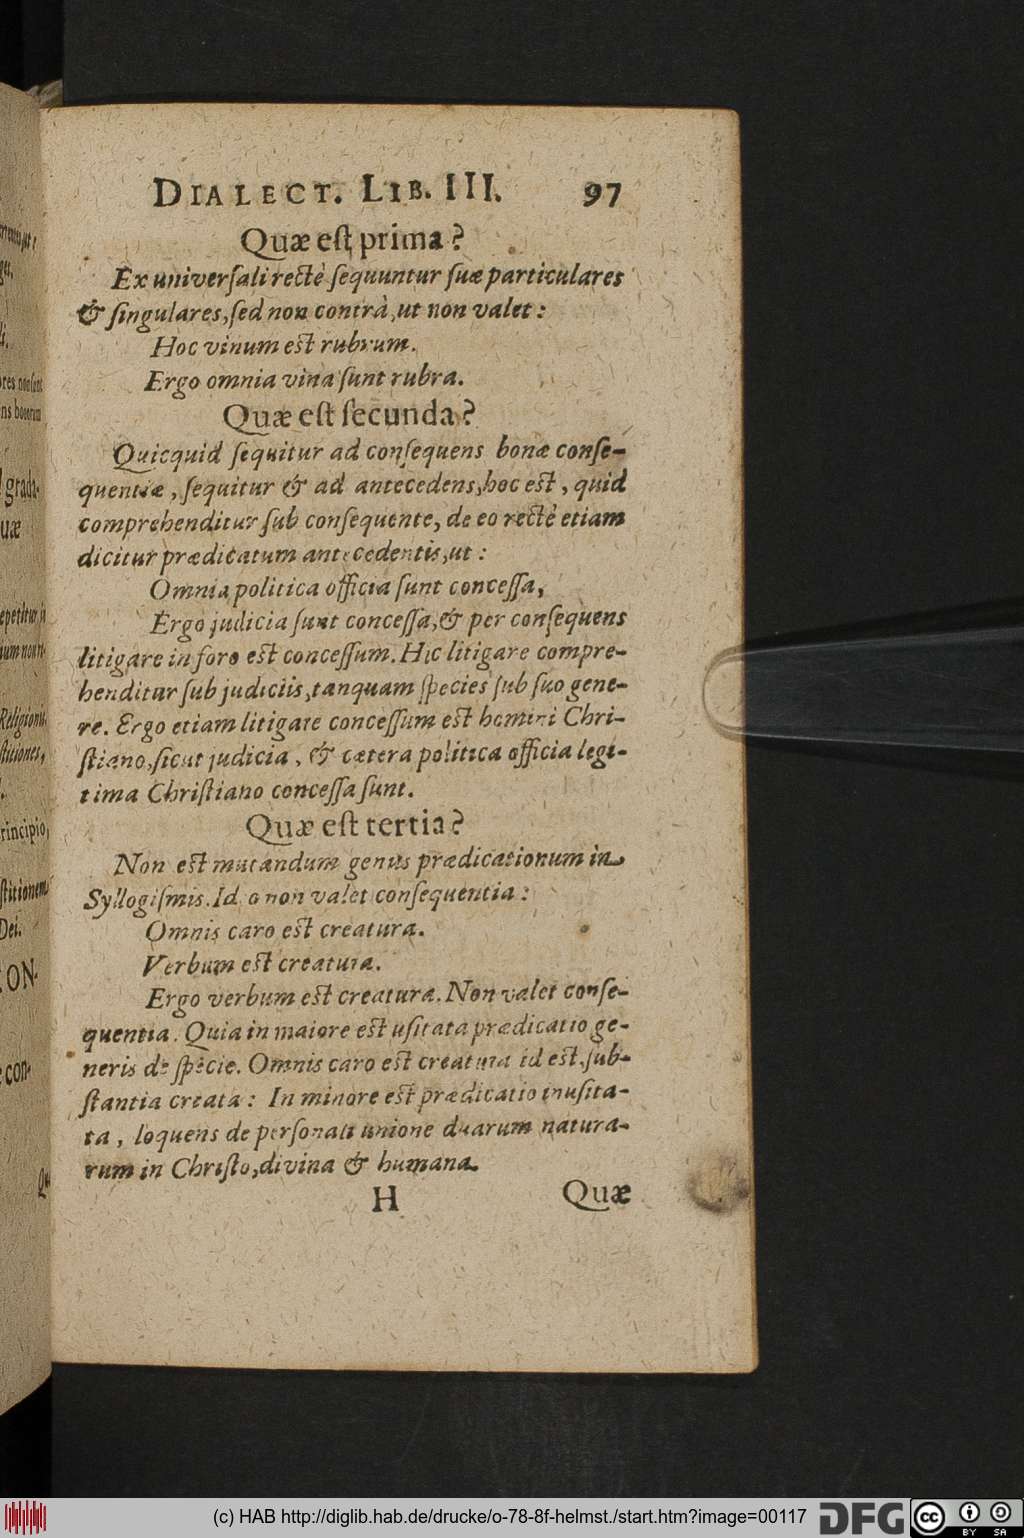 DIALECT. LIB. III. 97
Quæ eſt prima?
Ex univerſali rectè ſequuntur ſuæ particulares
& ſingulares, ſed non contrà, ut non valet:
Hoc vinum eſt rubrum.
Ergo omnia vina ſunt rubra.
Quæ eſt ſecunda?
Quicquid ſequitur ad conſequens bonæ conſe-
quentiæ, ſequitur & ad antecedens, hoc eſt, quid
comprehenditur ſub conſequente, de eo rectè etiam
dicitur prædicatum antecedentis, ut:
Omnia politica officia ſunt conceſſa,
Ergo judicia ſunt conceſſa, & per conſequens
litigare in foro eſt conceſſum. Hic litigare compre-
henditur ſub judiciis, tanquam ſpecies ſub ſuo gene-
re. Ergo etiam litigare conceſſum eſt homini Chri-
ſtiano, ſicut judicia, & cætera politica officia legi-
tima Chriſtiano conceſſa ſunt.
Quæ eſt tertia?
Non eſt mutandum genus prædicationum in
Syllogiſmis. Id o non valet conſequentia:
Omnis caro eſt creatura.
Verbum eſt creatura.
Ergo verbum eſt creatura. Non valet conſe-
quentia. Quia in maiore eſt uſitata prædicatio ge-
neris de ſpecie. Omnis caro eſt creatura id eſt, ſub-
ſtantia creata: In minore eſt prædicatio inuſita-
ta, loquens de perſonali unione duarum natura-
rum in Chriſto, divina & humana.
H Quæ
(c) HAB http://diglib.hab.de/drucke/o-78-8f-helmst./start.htm?image=00117 DFG cc BY SA